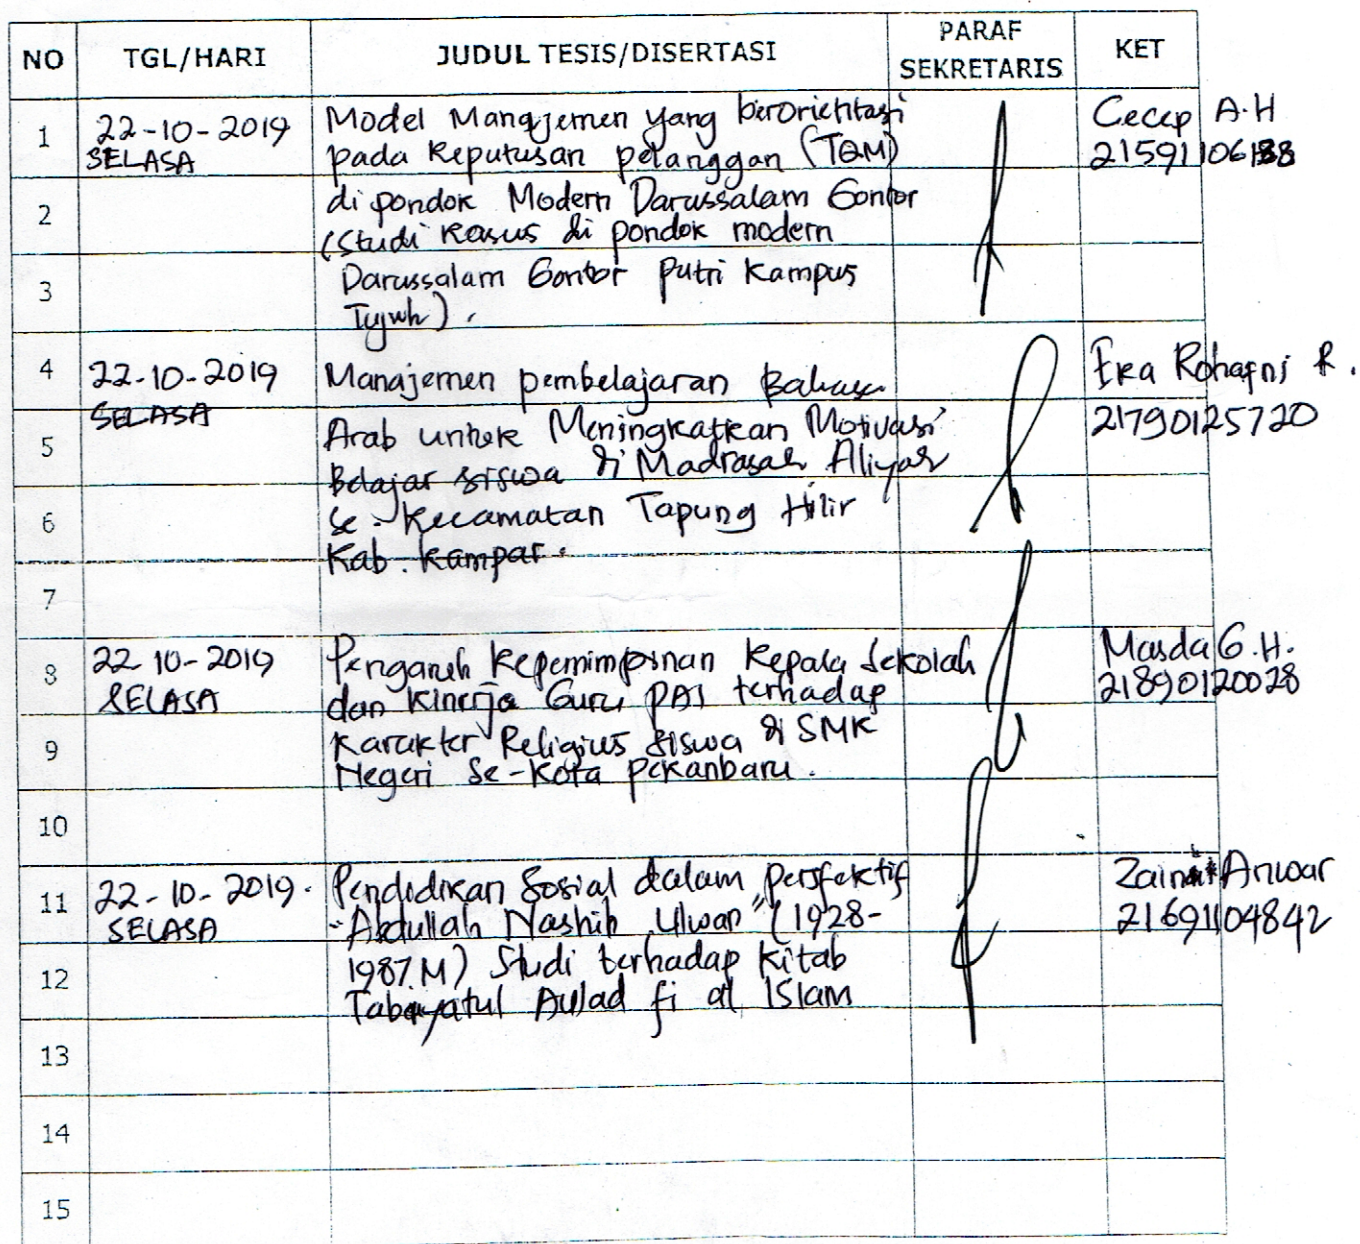 NO TGL/HARI JUDUL TESIS/DISERTASI PARAF SEKRETARIS KET
1 22-10-2019 Model Manajemen yang berorientasi Cecep A.H
SELASA pada Keputusan pelanggan (TQM) 21591106188
2 di pondok Modern Darussalam Gontor
(Studi Kasus di pondok modern
3 Darussalam Gontor Putri Kampus
Tujuh).
4 22-10-2019 Manajemen pembelajaran Bahasa Eka Rohayni R.
SELASA Arab untuk Meningkatkan Motivasi 21790125720
5 Belajar siswa di Madrasah Aliyah
6 Se-Kecamatan Tapung Hilir
Kab. Kampar.
7
8 22 10-2019 Pengaruh Kepemimpinan Kepala Sekolah Masda G.H.
SELASA dan Kinerja Guru PAI terhadap 21890120028
9 Karakter Religius Siswa di SMK
Negeri Se-Kota Pekanbaru.
10
11 22-10-2019. Pendidikan Sosial dalam persfektif Anwar
SELASA "Abdullah Nashih Ulwan" (1928- 21691104842
12 1987.M) Studi terhadap Kitab
Aulad fi al Islam
13
14
15